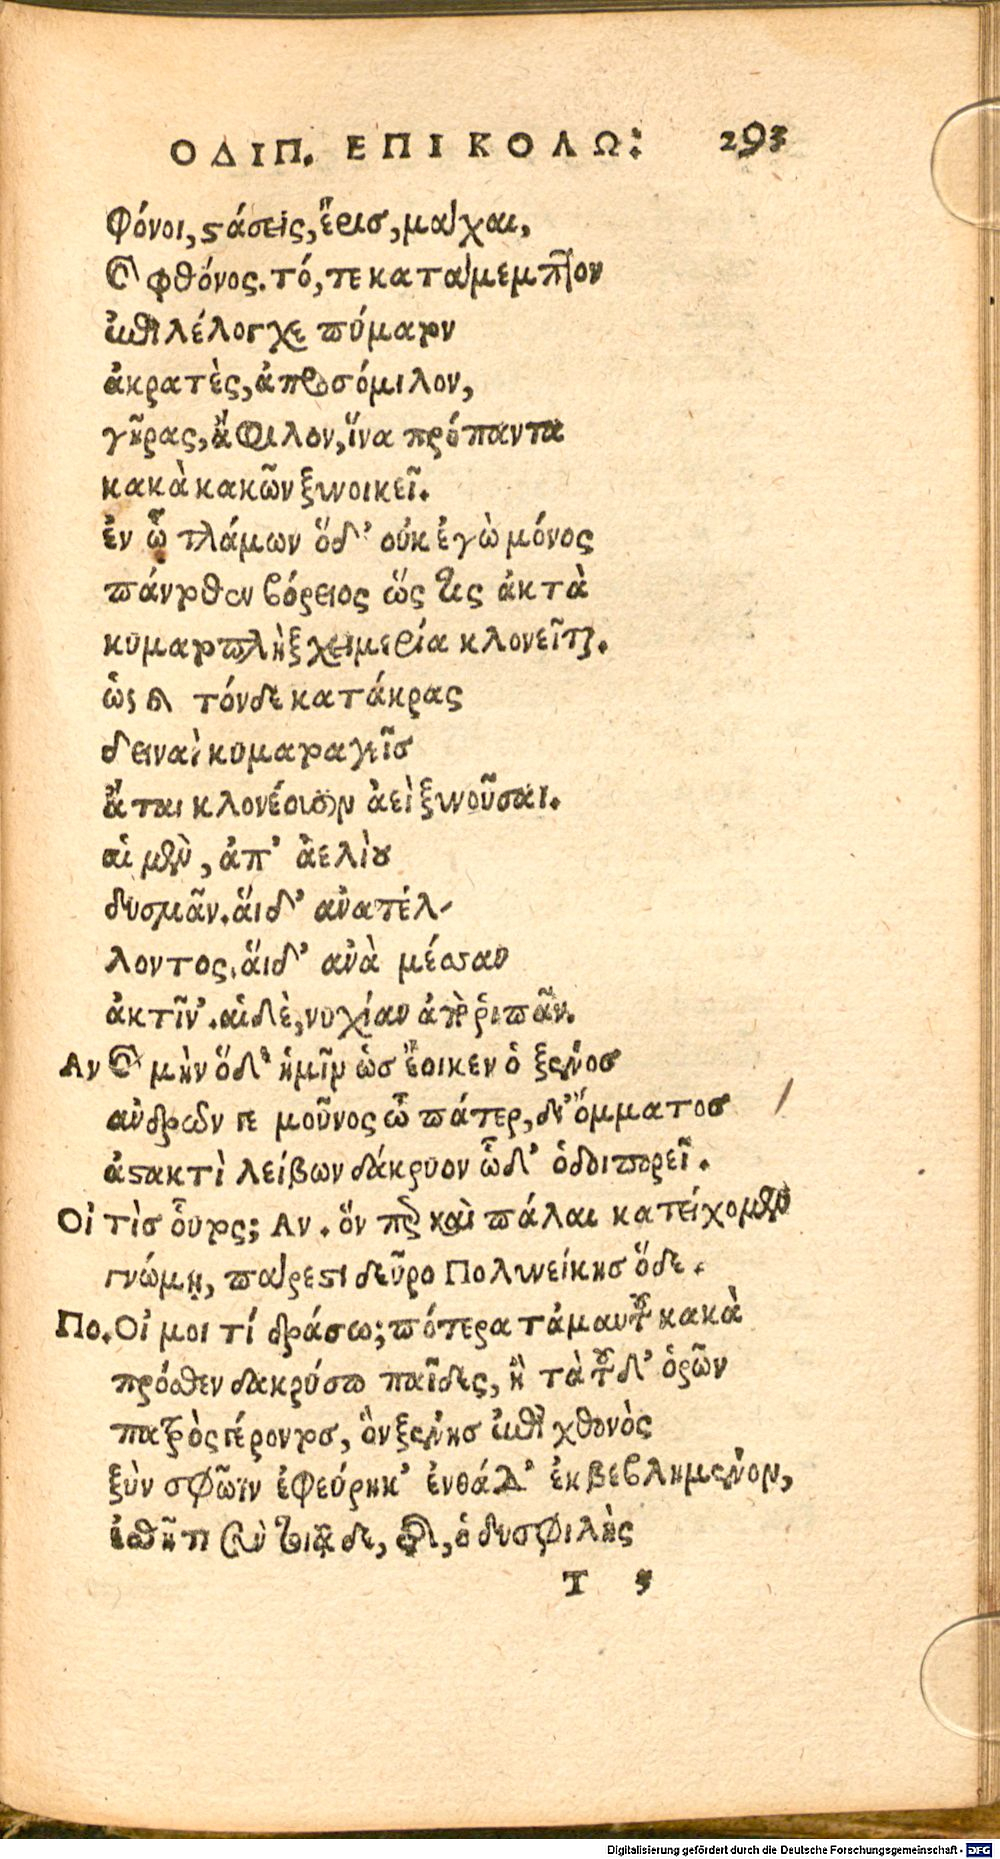 ΟΔΙΠ. ΕΠΙ ΚΟΛΩ: 293
Φόνοι, στάσεις, ἔρισ, μάχαι,
καὶ φθόνος. τό, τε κατάμεμπτον
ἐπιλέλογχε πύματον
ἀκρατὲς, ἀπροσόμιλον,
γῆρας, ἄφιλον, ἵνα πρόπαντα
κακὰ κακῶν ξυνοικεῖ.
ἐν ᾧ τλάμων ὅδ᾽ οὐκ ἐγὼ μόνος
πάντοθεν βόρειος ὥς τις ἀκτὰ
κυματοπλὴξ χειμερία κλονεῖται.
ὡς καὶ τόνδε κατάκρας
δειναὶ κυματοαγεῖσ
ἄται κλονέουσιν ἀεὶ ξυνοῦσαι.
αἱ μὲν, ἀπ᾽ ἀελίου
δυσμᾶν. ἅιδ᾽ ἀνατέλ-
λοντος. ἅιδ᾽ ἀνὰ μέσσαν
ἀκτῖν᾽. αἱδὲ, νυχίαν ἀπὸ ῥιπᾶν.
Αν καὶ μὴν ὅδ᾽ ἡμῖν ὡσ ἔοικεν ὁ ξένοσ
ἀνδρῶν γε μοῦνος ὦ πάτερ, δι᾽ ὄμματοσ
ἀστακτὶ λείβων δάκρυον ὧδ᾽ ὁδοιπορεῖ.
Οἰ τὶσ οὗτος; Αν. ὅν περ καὶ πάλαι κατείχομεν
γνώμῃ, πάρεστι δεῦρο Πολυνείκησ ὅδε.
Πο. Οἴ μοι τί δράσω; πότερα τἀμαυτοῦ κακὰ
πρόσθεν δακρύσω παῖδες, ἢ τὰ τοῦδ᾽ ὁρῶν
πατρὸς γέροντοσ, ὃν ξένησ ἐπὶ χθονὸς
ξὺν σφῶϊν ἐφεύρηκ᾽ ἐνθάδ᾽ ἐκβεβλημένον,
ἐσθῆτι σὺν τοιᾷδε, τῆς, ὁ δυσφιλὴς
Τ 3
Digitalisierung gefördert durch die Deutsche Forschungsgemeinschaft - DFG